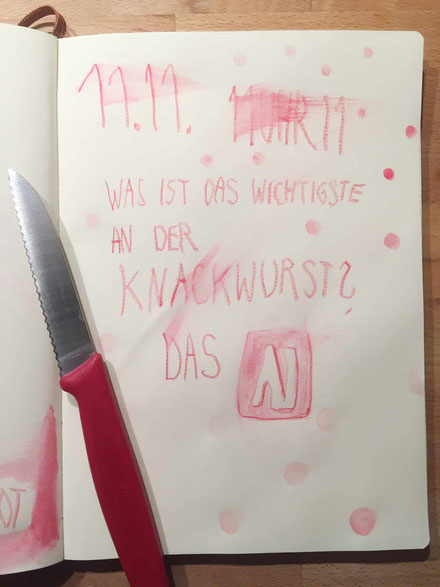 11.11. 11UHR11
WAS IST DAS WICHTIGSTE
AN DER
KNACKWURST?
DAS N
OT